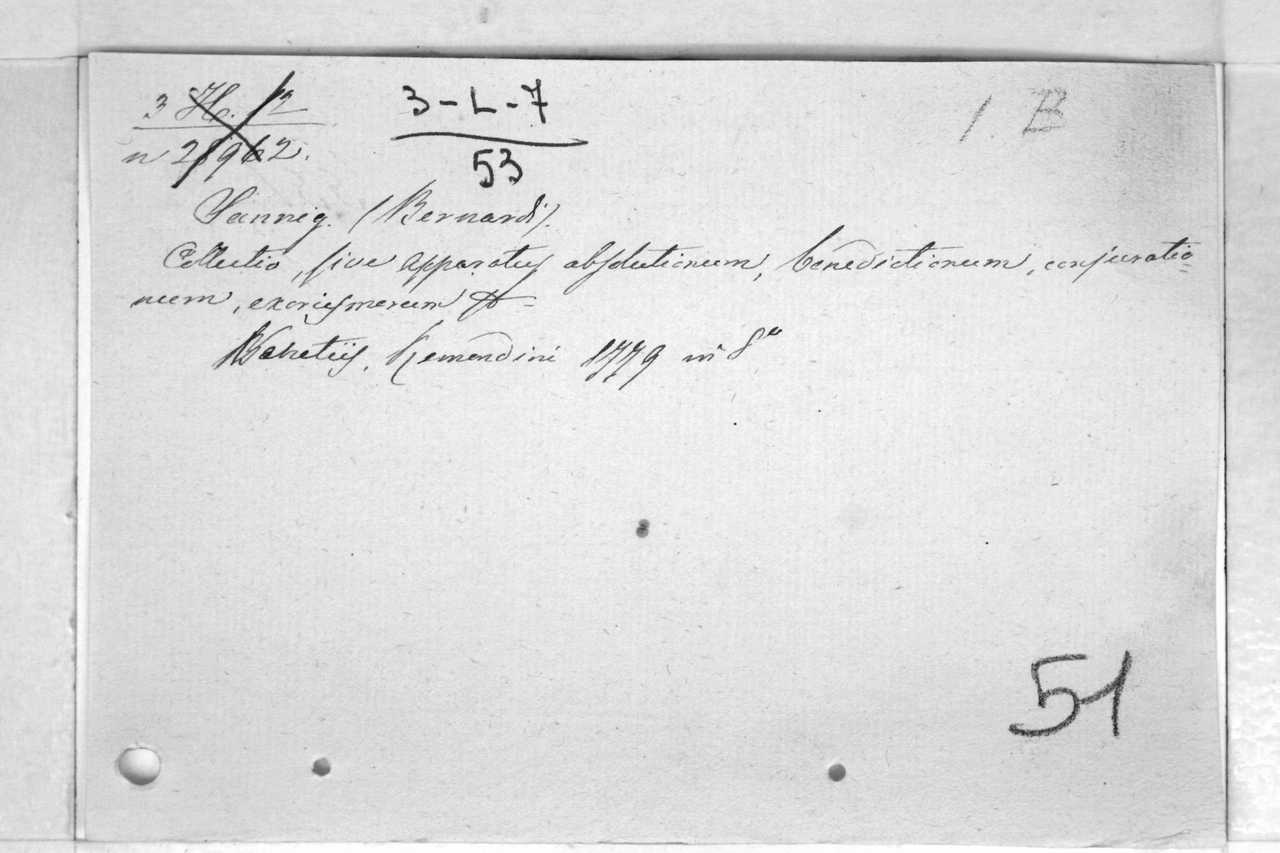 3 H. 12
n 21962.
3-L-7
53
1. B
Sannig. (Bernardi).
Collectio, sive apparatus absolutionum, benedictionum, conjuratio=
num, exorcismorum &
Venetiis, Remondini 1779 in 8º
51